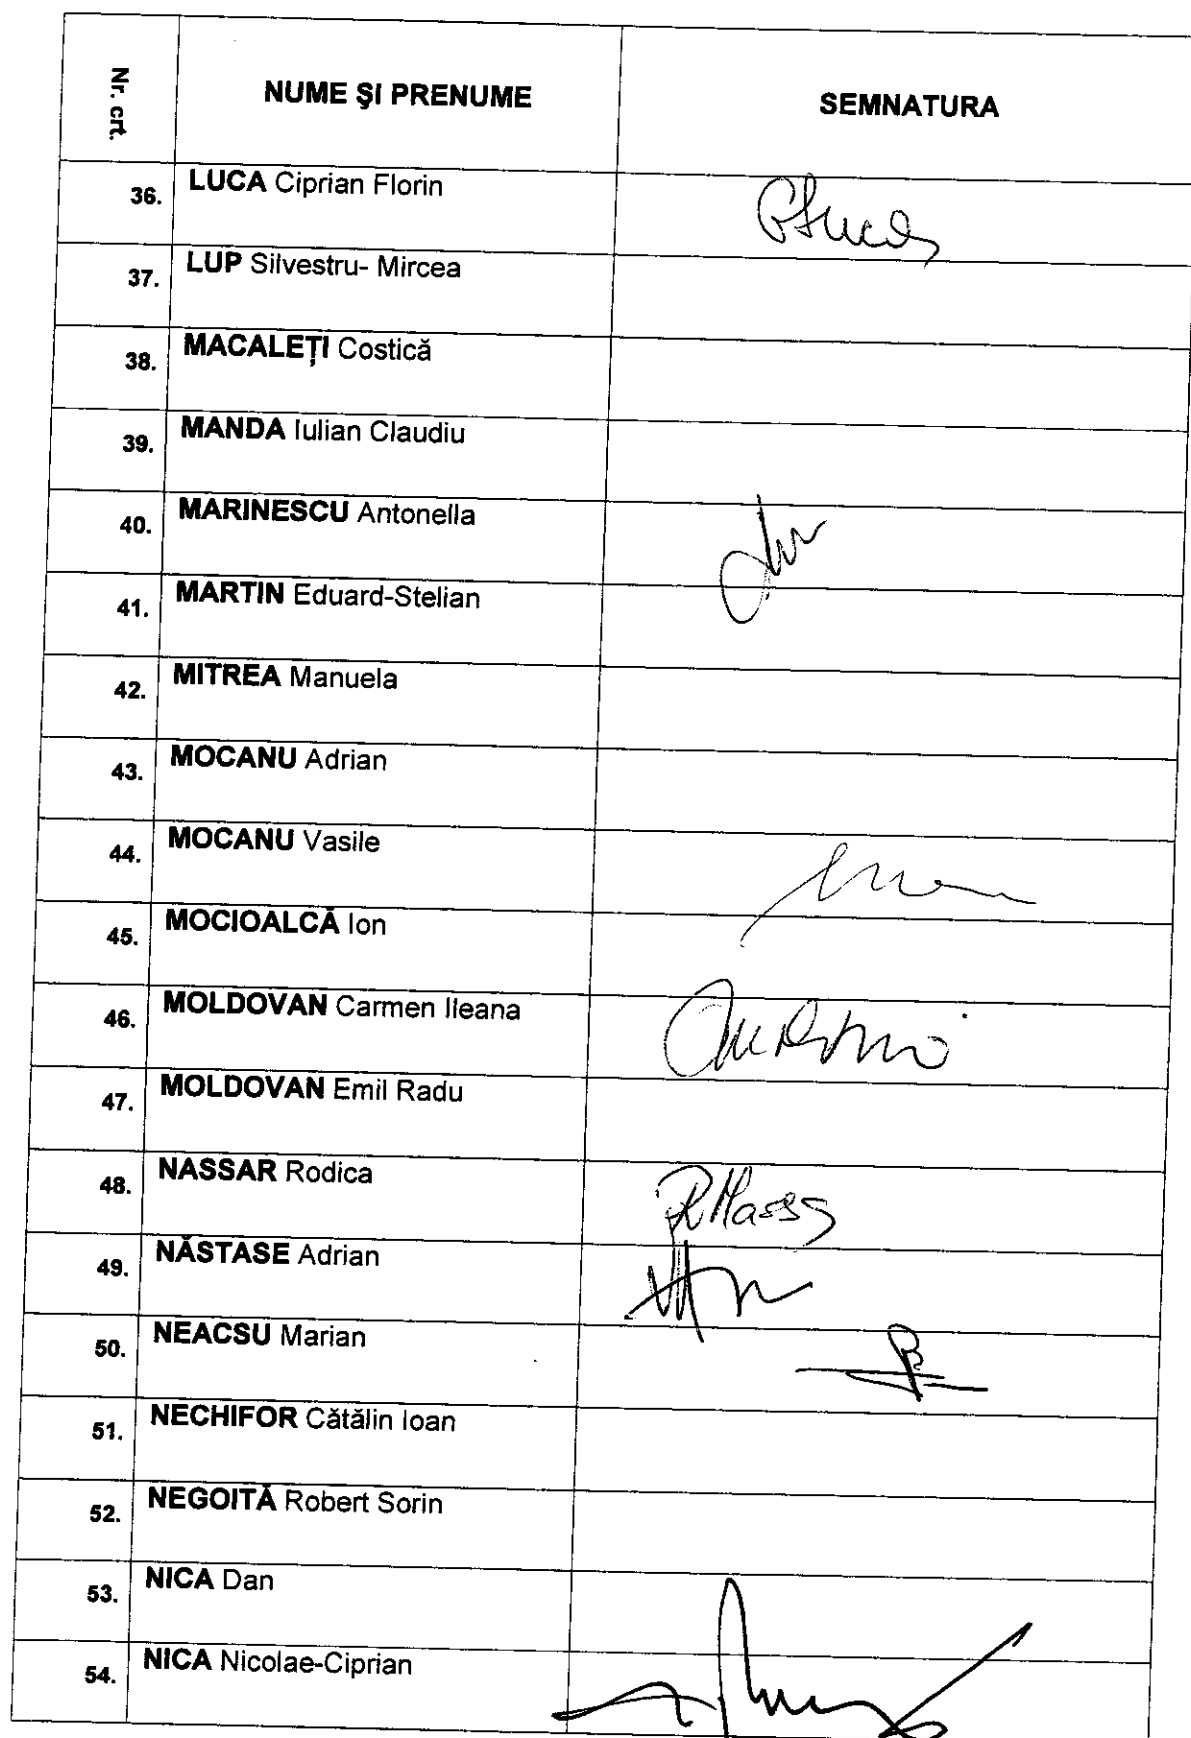 Nr. crt. NUME ŞI PRENUME SEMNATURA
36. LUCA Ciprian Florin
37. LUP Silvestru- Mircea
38. MACALEȚI Costică
39. MANDA Iulian Claudiu
40. MARINESCU Antonella
41. MARTIN Eduard-Stelian
42. MITREA Manuela
43. MOCANU Adrian
44. MOCANU Vasile
45. MOCIOALCĂ Ion
46. MOLDOVAN Carmen Ileana
47. MOLDOVAN Emil Radu
48. NASSAR Rodica
49. NĂSTASE Adrian
50. NEACSU Marian
51. NECHIFOR Cătălin Ioan
52. NEGOITĂ Robert Sorin
53. NICA Dan
54. NICA Nicolae-Ciprian